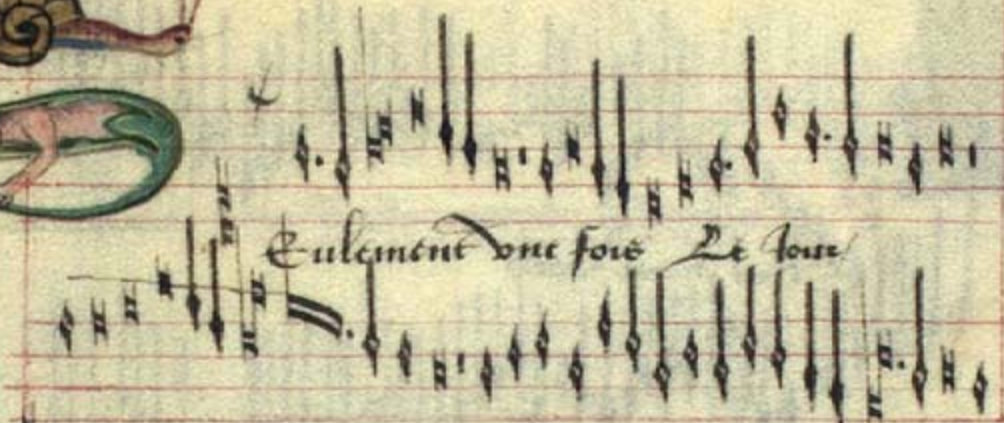 Eulement vne fois Le Jour